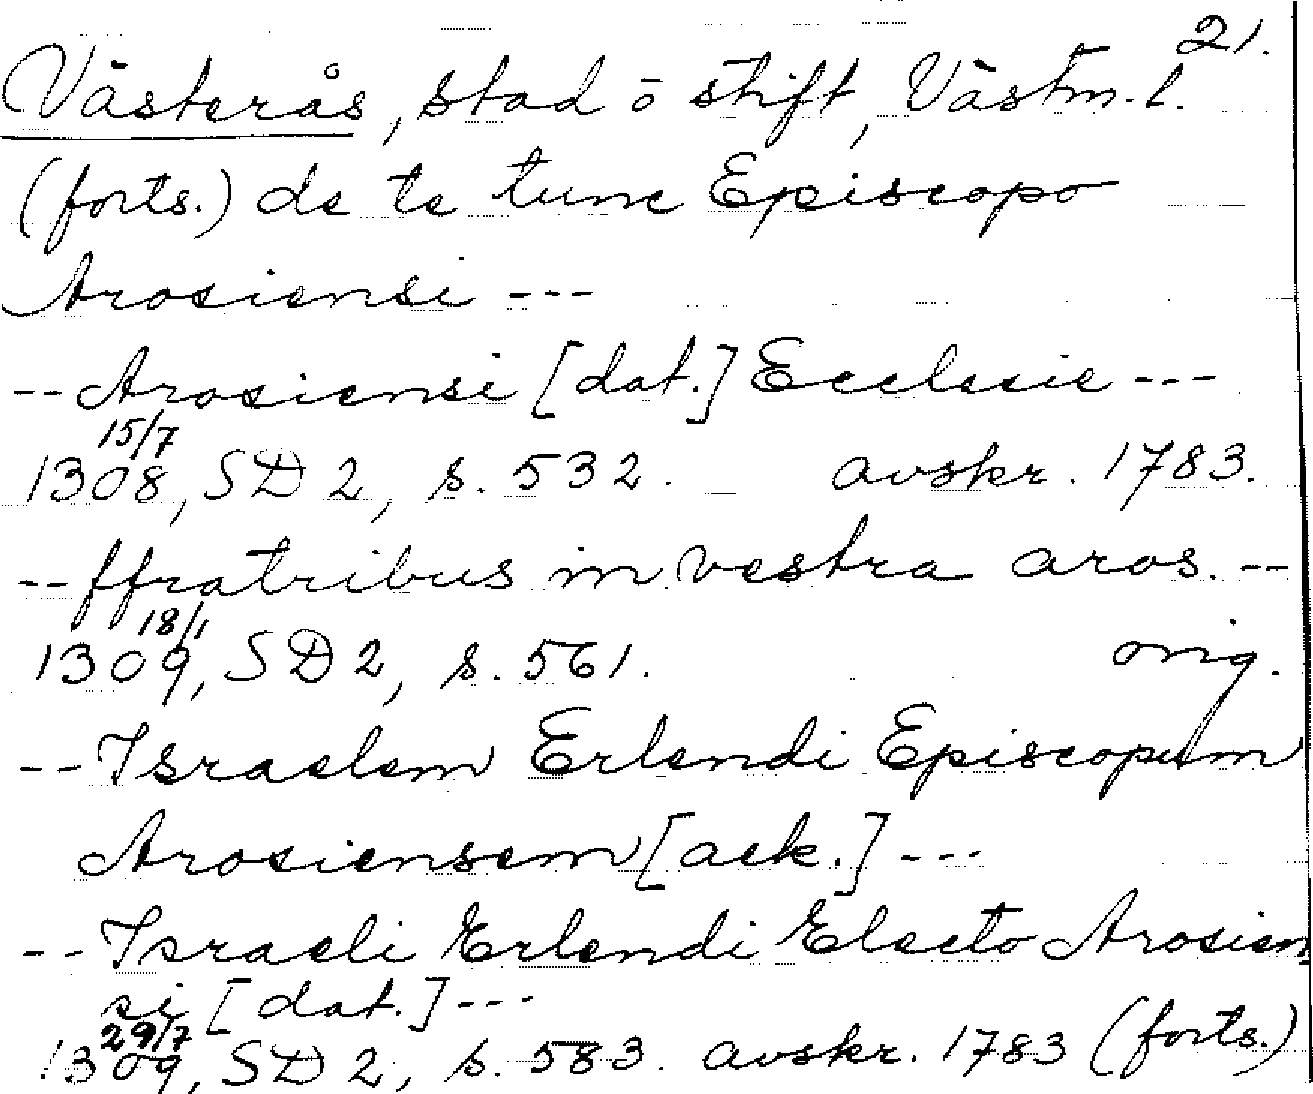 21.
Västerås, stad o stift, Västm. l.
(forts.) de te tunc Episcopo
Arosiensi ---
-- Arosiensi [dat.] Ecclesie ---
15/7
1308, SD 2, s. 532. avskr. 1783.
-- ffratribus in vestra aros. --
18/1
1309, SD 2, s. 561. orig.
-- Israelem Erlendi Episcopum
Arosiensem [ack.] ---
-- Israeli Erlendi Electo Arosien
si [dat.] ---
29/7
1309, SD 2, s. 583. avskr. 1783 (forts.)